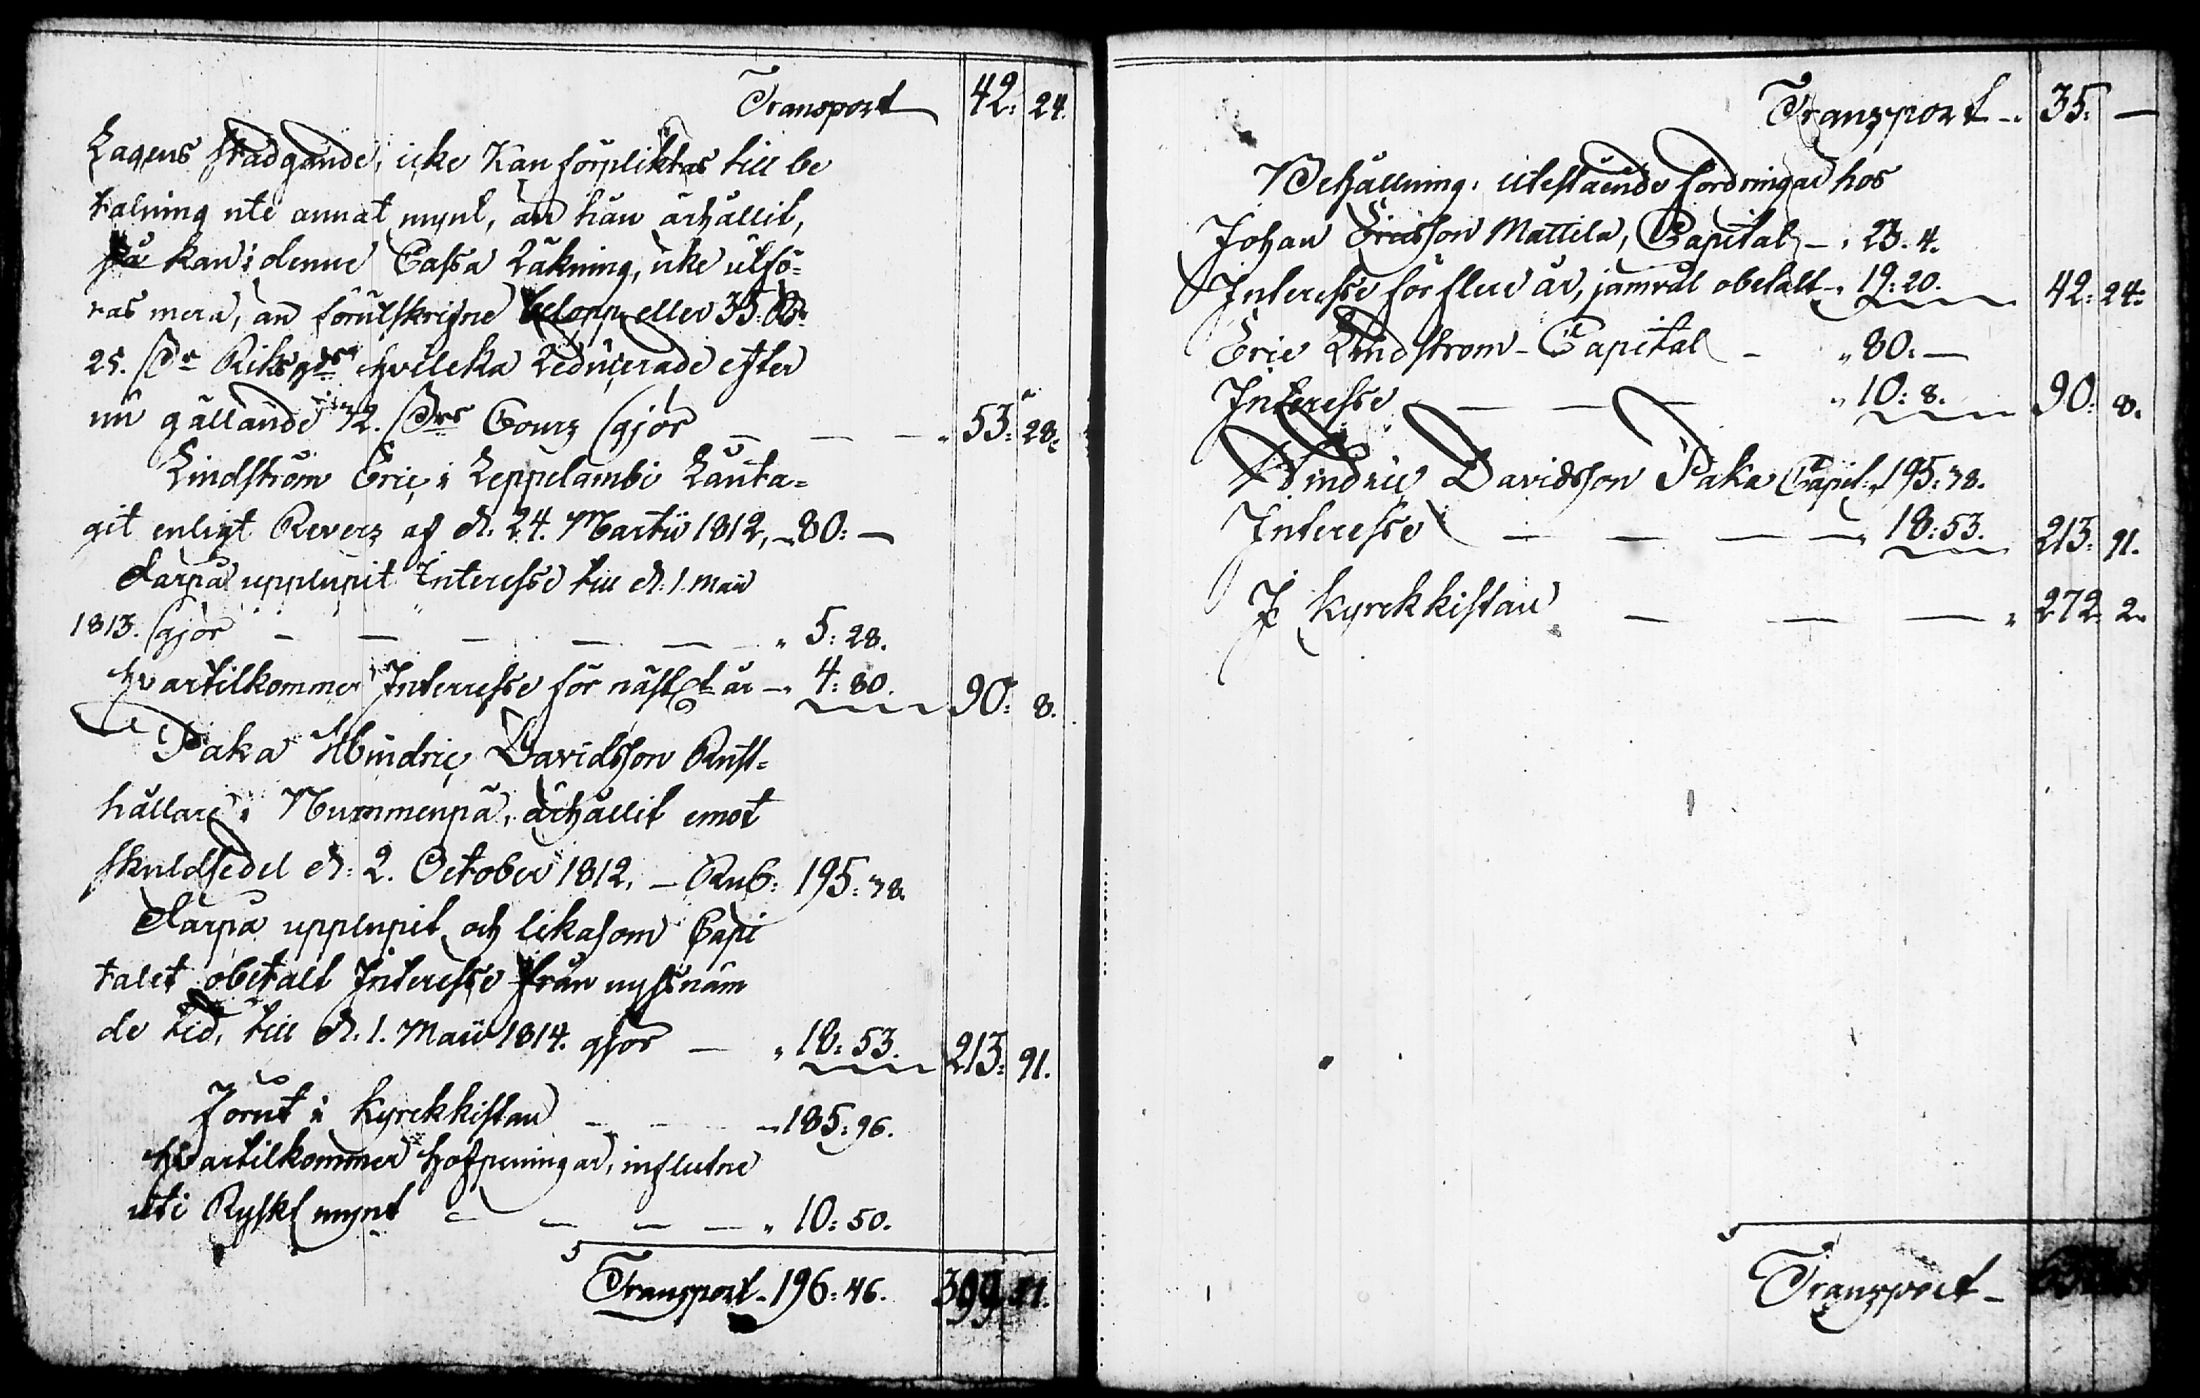 Transport 42: 24.
Lagens stadgande, icke kan förpliktas till be
talning uti annat mynt, än han ärhållit,
så kan i denne Cassa Räkning, icke utfö=
ras mera, än förutskrifne belopp eller 35 Rd
25. Sr Riksgds hvileka Reducerade efter
nu gällande 72. Srs Cours gjör — — — " 53: 28.
Lindström Eric i Leppelambi Lånta=
git enligt Revers af d. 24. Martii 1812, — 80: —
därpå upplupit Interesse till d. 1. Maii
1813. gjör — — — — — " 5: 28.
hvartilkommer Interresse för näst år — 4: 80. 90: 8.
Paka Hindric Davidsson Rust=
hållare i Nummenpä, ärhållit emot
skuldsedel d. 2. October 1812, — Rub: 195: 38.
därpå upplupit och likasom Capi
talet obetalt Interesse från nyssnäm
de tid, till d. 1. Maii 1814. gjör — " 18: 53. 213: 91.
Förut i Kyrckkistan — — — 185: 96.
hvartilkommer Hofpeningar, influtne
uti Ryskt mynt — — — — " 10: 50.
Transport - 196: 46. 399
Transport — 35: —
Behållning: utestående fordringar hos
Johan Ericsson Mattila, Capital — " 23. 4.
Interesse för flere år, jämväl obetalt — 19: 20. 42: 24.
Eric Lindström - Capital — " 80: —
Interesse — — — " 10: 8. 90: 8.
Hindric Davidsson Paka Capit: 195: 38.
Interesse — — — — " 18: 53. 213: 91.
I Kyrckkistan — — — " 272: 2.
Transport —